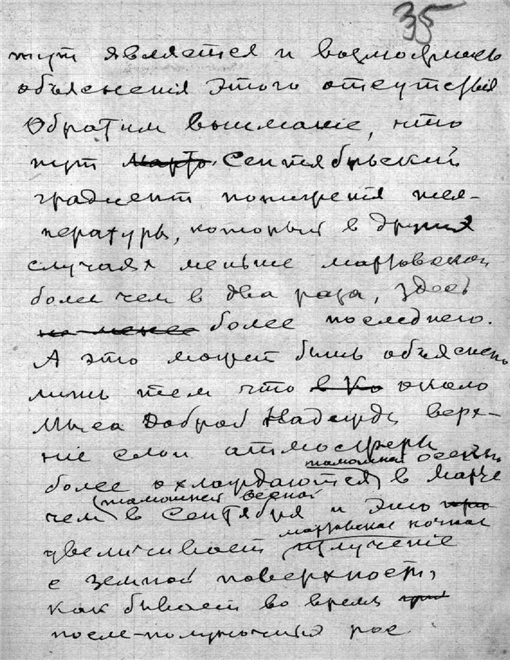 35
тут является и возможность
объяснения этого отсутствія
Обратим вниманіе, что
тут марто Сентябрьский
градиент понижения тем-
пературы, который в других
случаях меньше мартовской
более чем в два раза, здесь
не менее более последнего.
А это может быть объяснень
лишь тем что в Ко около
Мыса Доброй Надежды верх-
ніе слои атмосферы
тамошней осенью
более охлаждаются в Марте
тамошней весной
чем в Сентября и это
мартовское ночное
увеличивает излученіе
с земной поверхности,
как бывает во время
после-полуночных рос